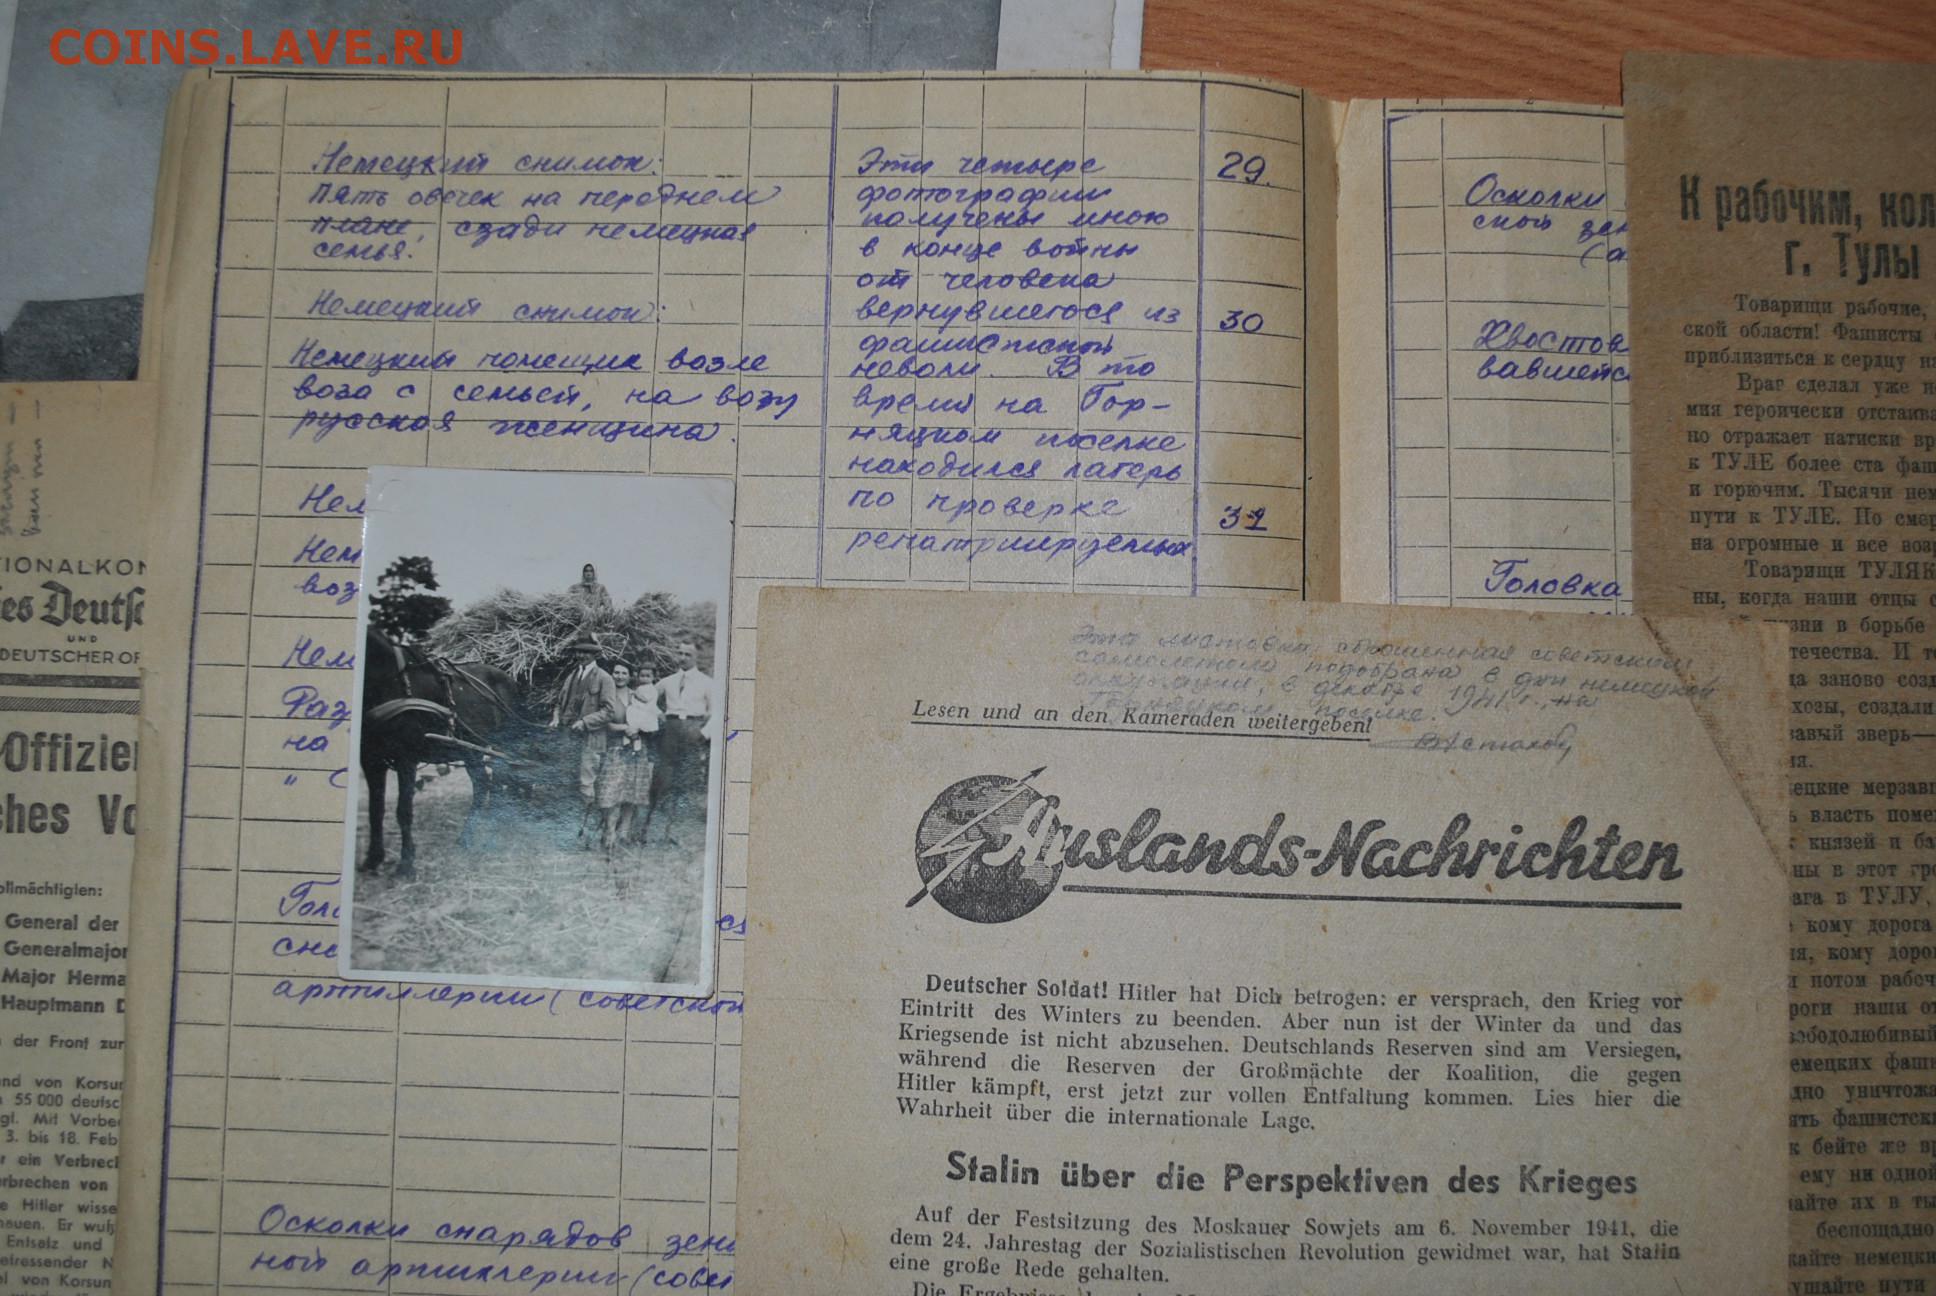 COINS.LAVE.RU
Немецкий снимок:
пять овечек на переднем
плане, сзади немецкая
семья.
Немецкий снимок:
Немецкий помещик возле
воза с семьей, на возу
русская женщина.
Нем
Нем
воз
Нем
Раз
на
" С
Голо
сна
артиллерии (советской
Осколки снарядов зени
ной артиллерии (совет
Эти четыре
фотографии
получены мною
в конце войны
от человека
вернувшегося из
фашистской
неволи. В то
время на Гор-
няцком поселке
находился лагерь
по проверке
репатриируемых.
29.
30
31
2
Осколки
ской зен
(а
Хвостов
вавшейс
Головка
TIONALKOM
es Deutsc
UND
DEUTSCHER OF
-Offizier
ches Vo
ollmächtigten:
General der
Generalmajor
Major Herma
Hauptmann D
der Front zur
nd von Korsun
55 000 deutsc
gl. Mit Vorbe
3. bis 18. Feb
r ein Verbrech
erbrechen von
e Hitler wisse
auen. Er wuß
Entsatz und
etressender N
el von Korsun
Эта листовка, сброшенная советским
самолетом подобрана в дни немецкой
оккупации, в декабре 1941 г., на
Горняцком поселке.
В. Астахов
Lesen und an den Kameraden weitergeben!
Auslands-Nachrichten
Deutscher Soldat! Hitler hat Dich betrogen: er versprach, den Krieg vor
Eintritt des Winters zu beenden. Aber nun ist der Winter da und das
Kriegsende ist nicht abzusehen. Deutschlands Reserven sind am Versiegen,
während die Reserven der Großmächte der Koalition, die gegen
Hitler kämpft, erst jetzt zur vollen Entfaltung kommen. Lies hier die
Wahrheit über die internationale Lage.
Stalin über die Perspektiven des Krieges
Auf der Festsitzung des Moskauer Sowjets am 6. November 1941, die
dem 24. Jahrestag der Sozialistischen Revolution gewidmet war, hat Stalin
eine große Rede gehalten.
К рабочим, кол
г. Тулы
Товарищи рабочие,
ской области! Фашисты
приблизиться к сердцу на
Враг сделал уже н
мия героически отстаива
но отражает натиски вр
к ТУЛЕ более ста фаш
и горючим. Тысячи нем
пути к ТУЛЕ. По смер
на огромные и все возр
Товарищи ТУЛЯК
ны, когда наши отцы с
изни в борьбе
течества. И т
да заново созд
хозы, создали
вавый зверь—
ия.
ецкие мерзав
ь власть поме
князей и ба
ны в этот гро
ага в ТУЛУ,
кому дорога
ия, кому доро
и потом рабоч
роги наши от
вободолюбивый
емецких фаш
дно уничтожа
ять фашистск
к бейте же вр
ему ни одной
айте их в ты
беспощадно
кайте немецки
ушайте пути